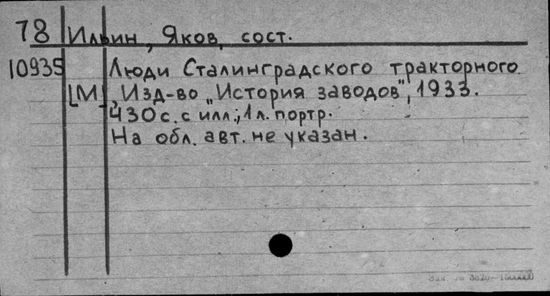 78 Ильин, Яков, сост.
10935 Люди Сталинградского тракторного
[М], Изд-во "История заводов", 1933.
430 с. с илл.; 1 л. портр.
На обл. авт. не указан.